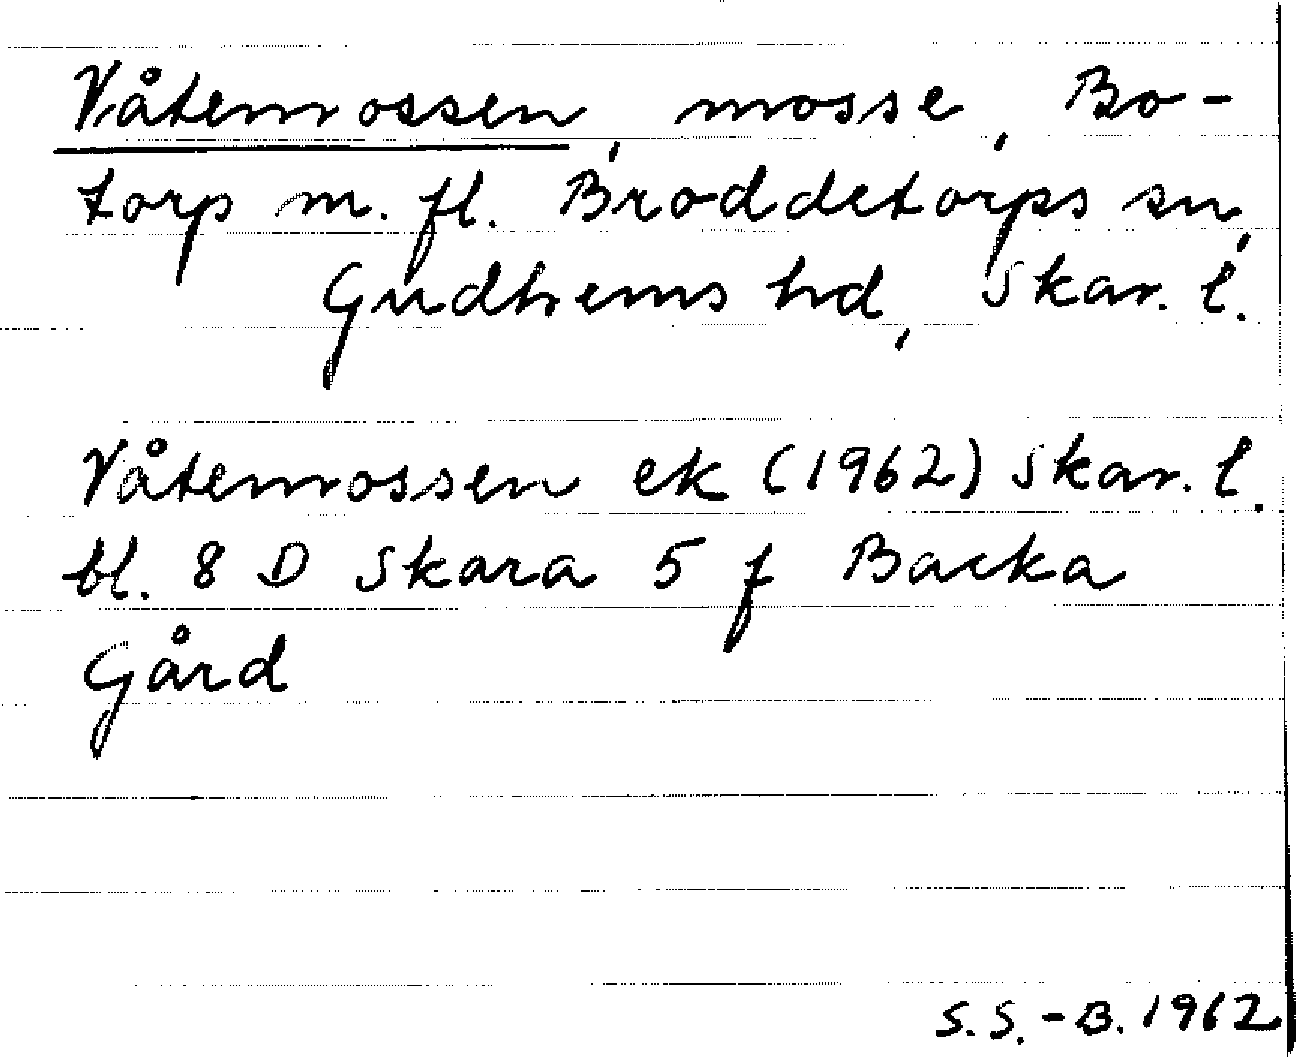 Våtemossen, mosse, Bo-
torp m. fl. Broddetorps sn,
Gudhems hd, Skar. l.
Våtemossen ek (1962) Skar. l.
bl. 8 D Skara 5 f Backa
Gård
S. S.-B. 1962